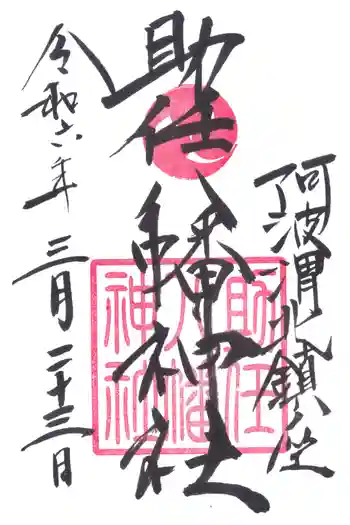 阿波渭北鎮座
助任八幡神社
令和六年 三月 二十三日
助任
八幡
神社